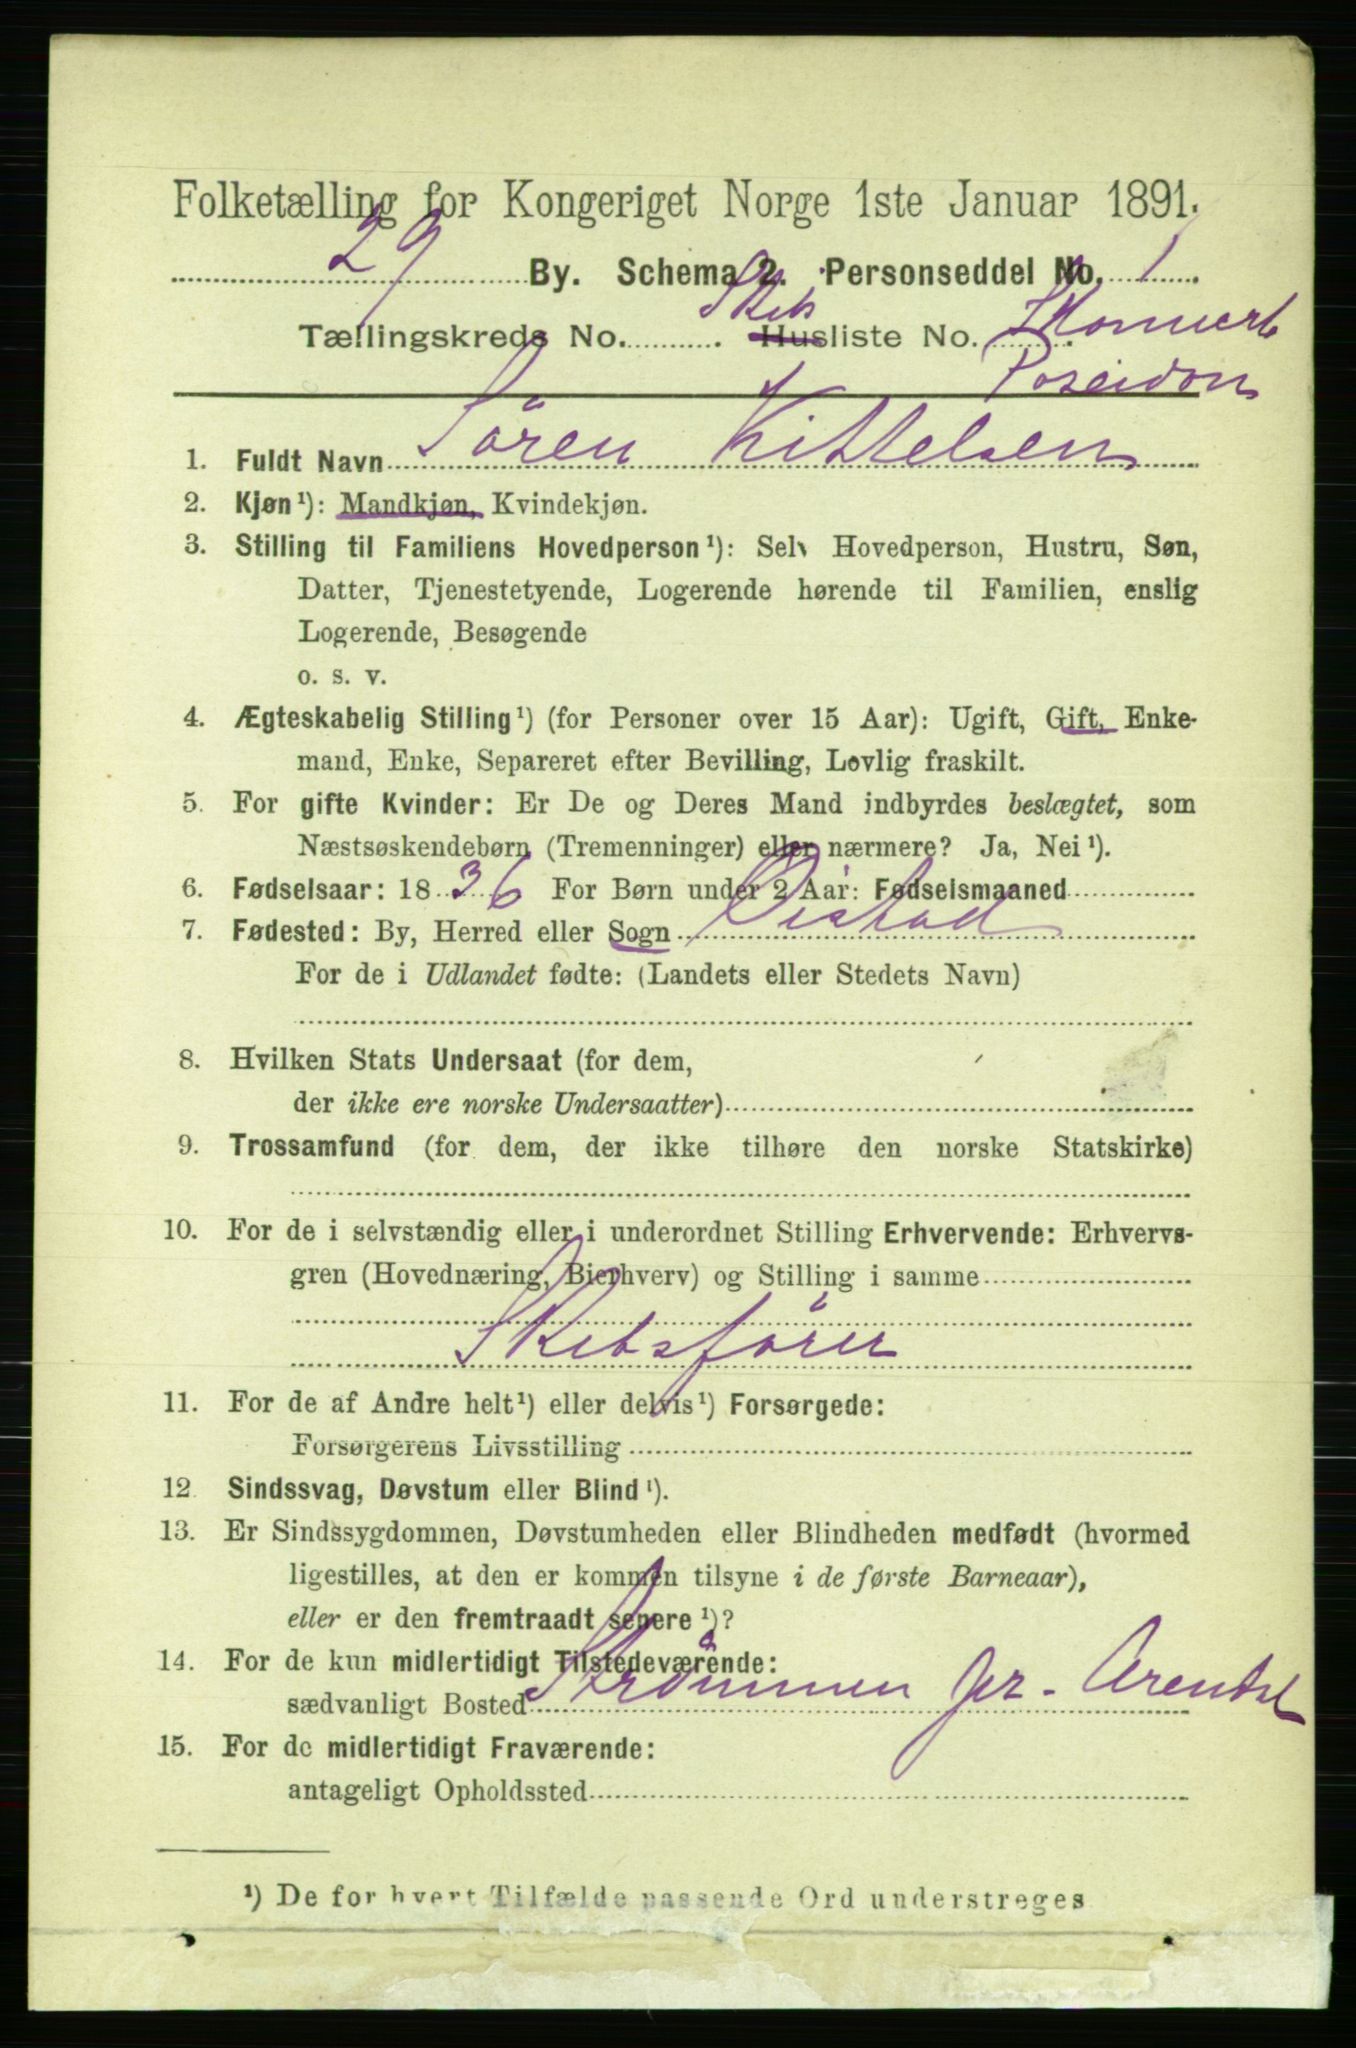 Folketælling for Kongeriget Norge 1ste Januar 1891.
29 By. Schema 2. Personseddel No. 1
Tællingskreds No. ........ . Skibs Husliste No. ........ . Skonnert
Poseidon
1. Fuldt Navn Sören Kittelsen
2. Kjøn¹): Mandkjøn, Kvindekjøn.
3. Stilling til Familiens Hovedperson¹): Selv Hovedperson, Hustru, Søn,
Datter, Tjenestetyende, Logerende hørende til Familien, enslig
Logerende, Besøgende
o. s. v.
4. Ægteskabelig Stilling¹) (for Personer over 15 Aar): Ugift, Gift, Enke-
mand, Enke, Separeret efter Bevilling, Lovlig fraskilt.
5. For gifte Kvinder: Er De og Deres Mand indbyrdes beslægtet, som
Næstsøskendebørn (Tremenninger) eller nærmere? Ja, Nei¹).
6. Fødselsaar: 1836 For Børn under 2 Aar: Fødselsmaaned
7. Fødested: By, Herred eller Sogn Öistad
For de i Udlandet fødte: (Landets eller Stedets Navn)
8. Hvilken Stats Undersaat (for dem,
der ikke ere norske Undersaatter)
9. Trossamfund (for dem, der ikke tilhøre den norske Statskirke)
10. For de i selvstændig eller i underordnet Stilling Erhvervende: Erhvervs-
gren (Hovednæring, Bierhverv) og Stilling i samme
Skibsförer
11. For de af Andre helt¹) eller delvis¹) Forsørgede:
Forsørgerens Livsstilling
12. Sindssvag, Døvstum eller Blind¹).
13. Er Sindssygdommen, Døvstumheden eller Blindheden medfødt (hvormed
ligestilles, at den er kommen tilsyne i de første Barneaar),
eller er den fremtraadt senere¹)?
14. For de kun midlertidigt Tilstedeværende:
sædvanligt Bosted Strömmen pr. Arendal
15. For de midlertidigt Fraværende:
antageligt Opholdssted
¹) De for hvert Tilfælde passende Ord understreges